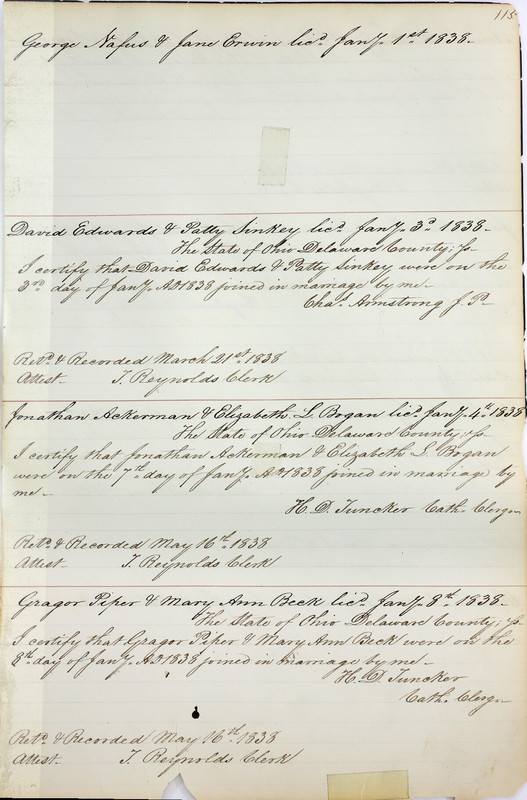 115
George Nafus & Jane Erwin licd. Jany. 1st 1838.
David Edwards & Patty Sinkey licd. Jany. 3d 1838-
The State of Ohio Delaware County; ss
I certify that David Edwards & Patty Sinkey were on the
3rd day of Jany. AD 1838 joined in marriage by me-
Chas. Armstrong J. P.
Retd. & Recorded March 21st 1838
Attest- T. Reynolds Clerk
Jonathan Ackerman & Elizabeth L. Bogan licd. Jany. 4th 1838
The State of Ohio Delaware County; ss
I certify that Jonathan Ackerman & Elizabeth L. Bogan
were on the 7th day of Jany. AD 1838 joined in marriage by
me-
H. D. Juncker Cath. Clergn
Retd. & Recorded May 16th 1838
Attest- T. Reynolds Clerk
Gragor Piper & Mary Ann Beck licd. Jany. 8th 1838-
The State of Ohio Delaware County; ss
I certify that Gragor Piper & Mary Ann Beck were on the
8th day of Jany. AD 1838 joined in marriage by me-
H. D. Juncker
Cath. Clergn
Retd. & Recorded May 16th 1838
Attest- T. Reynolds Clerk